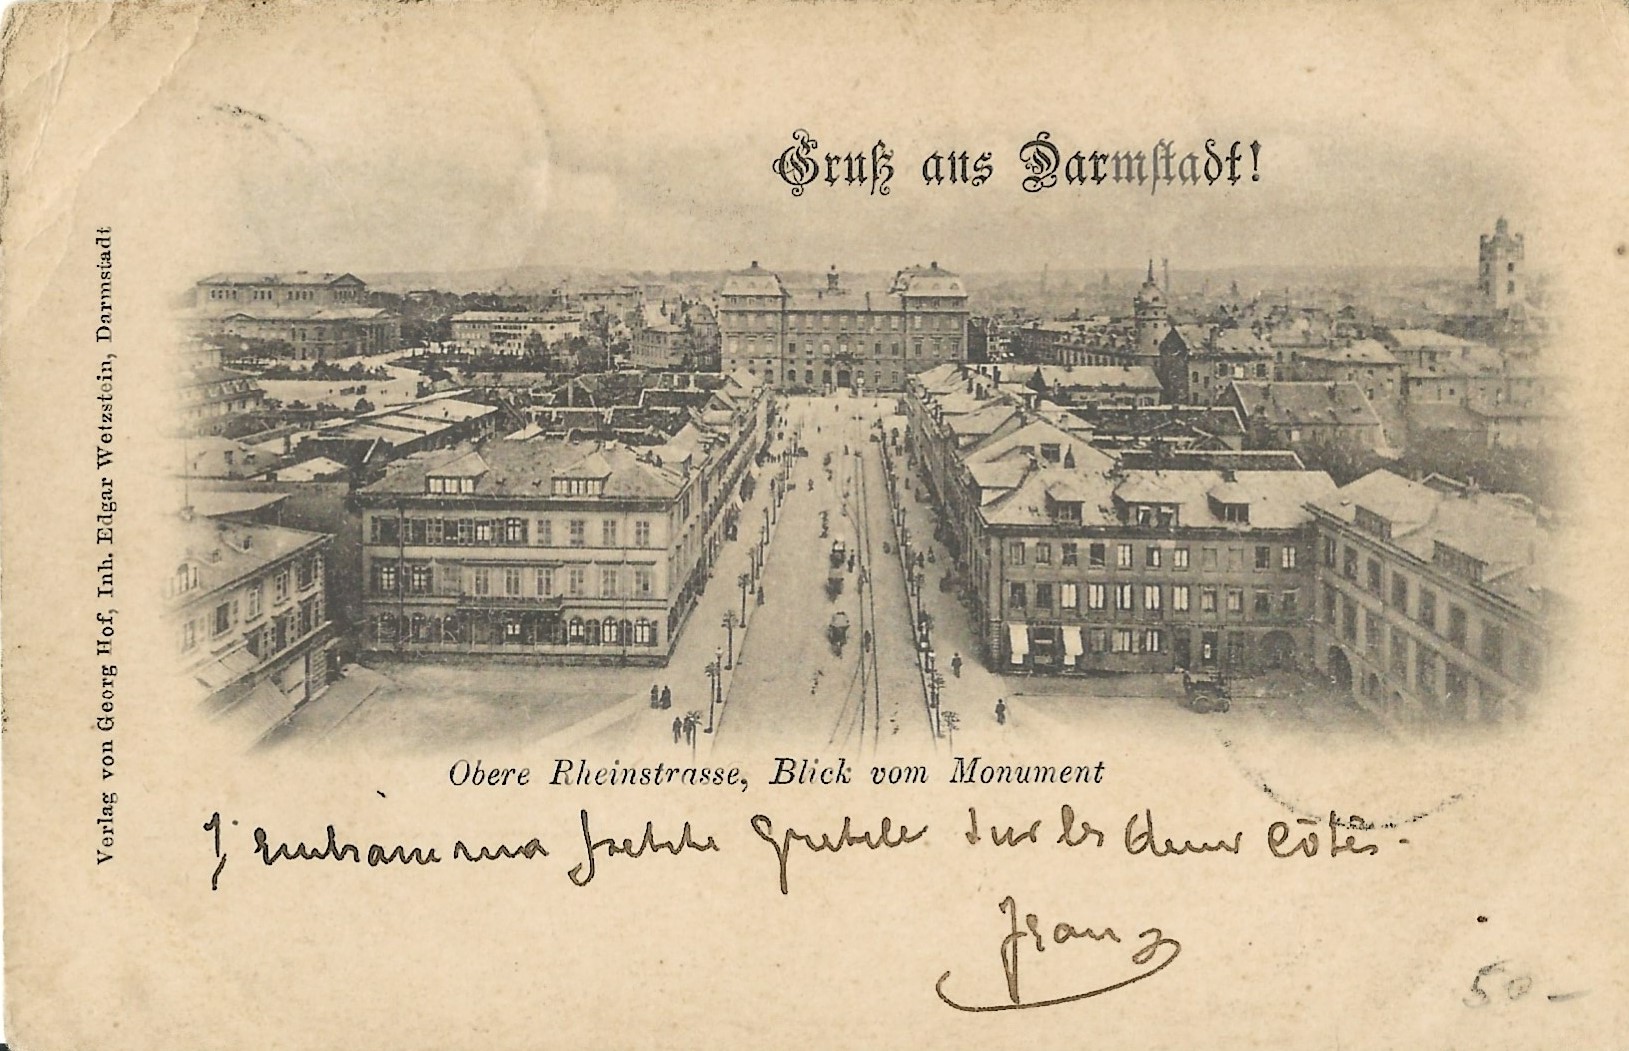 Gruß aus Darmstadt!
Verlag von Georg Hof, Inh. Edgar Wetzstein, Darmstadt
Obere Rheinstrasse, Blick vom Monument
J'embrasse ma Gretele sur les deux côtés.
50 -